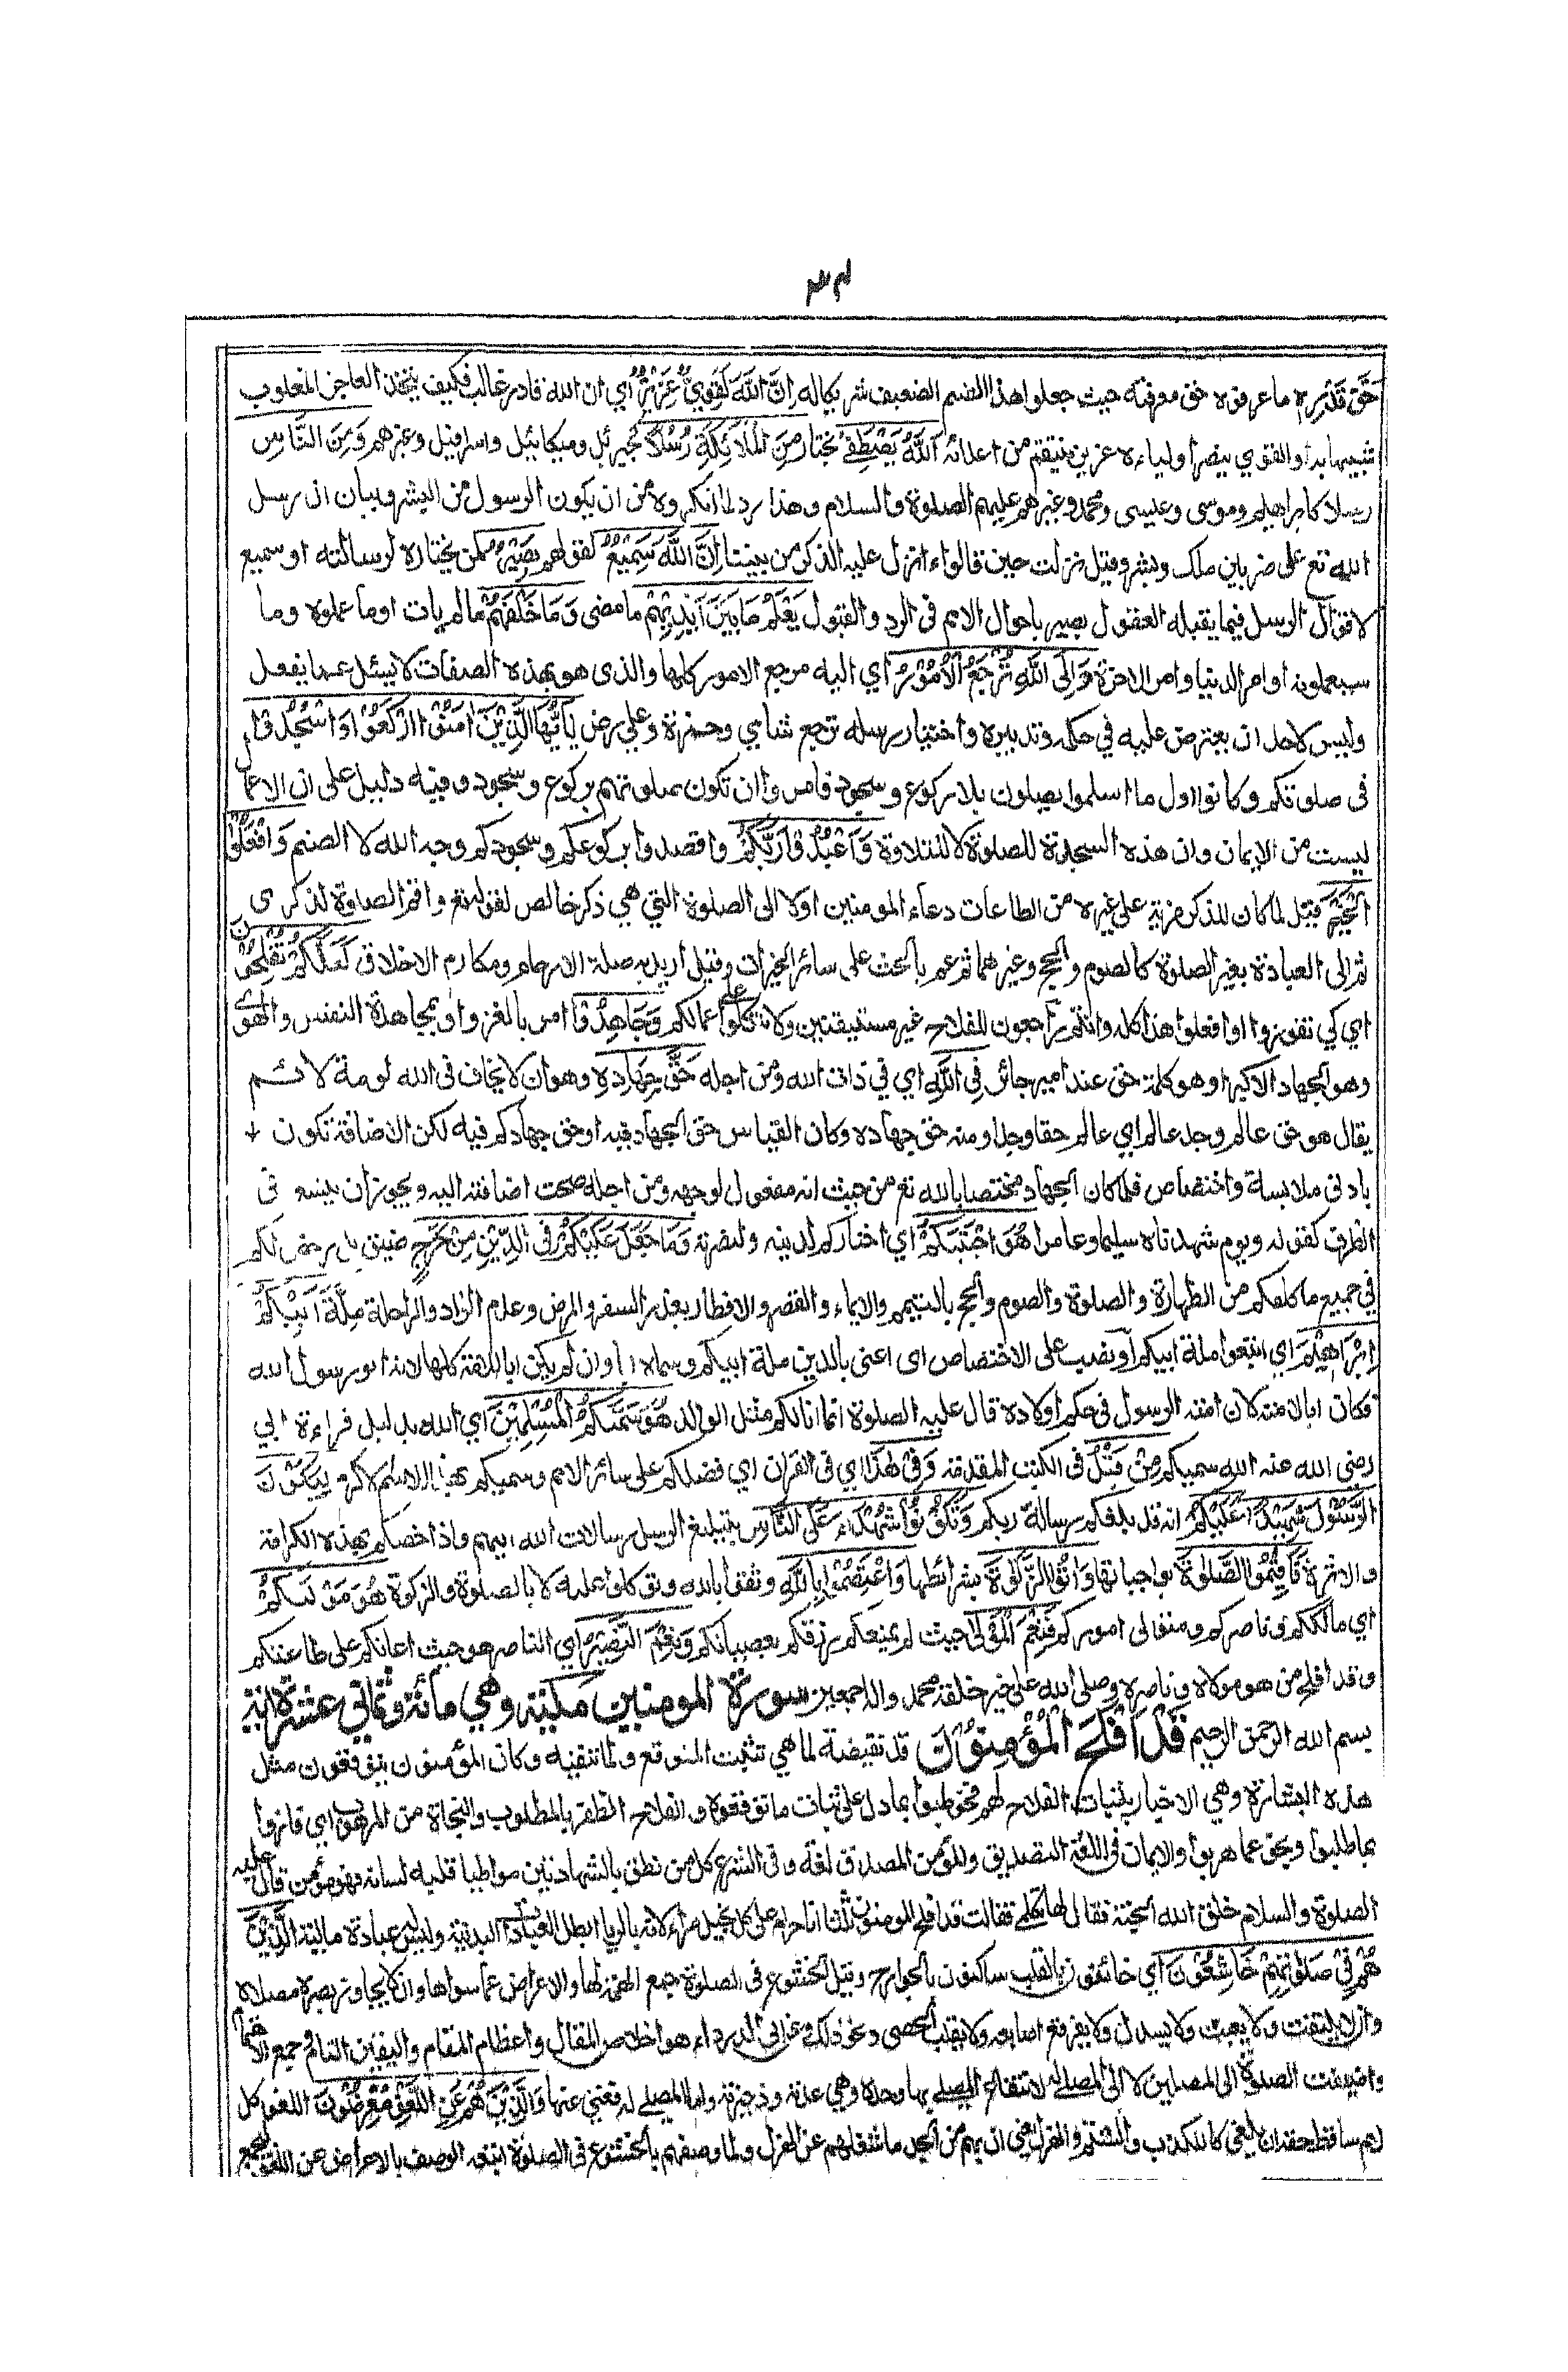 حَقَّ قَدْرِهٖ ما عرفوه حق معرفته حيث جعلوا هذا الصنم الضعيف شريكا له اِنَّ اللّٰهَ لَقَوِيٌّ عَزِيْزٌ اي ان الله قادر غالب فكيف يتخذ العاجز المغلوب
شبيها به او لقوي بنصر اوليائه عزيز ينتقم من اعدائه اَللّٰهُ يَصْطَفِيْ يختار مِنَ الْمَلٰٓئِكَةِ رُسُلًا كجبرئيل وميكائيل واسرافيل وغيرهم وَمِنَ النَّاسِ
رسلا كابراهيم وموسى وعيسى ومحمد وغيرهم عليهم الصلوة والسلام وهذا رد لما انكروه من ان يكون الرسول من البشر وبيان ان رسل
الله تع على ضربين ملك وبشر وقيل نزلت حين قالوا ءانزل عليه الذكر من بيننا اِنَّ اللّٰهَ سَمِيْعٌ لقولهم بَصِيْرٌ بمن يختاره لرسالته او سميع
لاقوال الرسل فيما يقبله العقول بصير باحوال الامم فى الرد والقبول يَعْلَمُ مَا بَيْنَ اَيْدِيْهِمْ ما مضى وَمَا خَلْفَهُمْ ما لم يات او ما عملوه وما
سيعملونه او امر الدنيا وامر الاخرة وَاِلَى اللّٰهِ تُرْجَعُ الْاُمُوْرُ اي اليه مرجع الامور كلها والذى هو بهذه الصفات لا يسئل عما يفعل
وليس لاحد ان يعترض عليه في حكمه وتدبيره واختيار رسله ترجع شامي وحمزة وعلي يٰٓاَيُّهَا الَّذِيْنَ اٰمَنُوْا ارْكَعُوْا وَاسْجُدُوْا
فى صلوتكم وكانوا اول ما اسلموا يصلون بلا ركوع وسجود فامروا ان تكون صلوتهم بركوع وسجود وفيه دليل على ان الاعمال
ليست من الايمان وان هذه السجدة للصلوة لا للتلاوة وَاعْبُدُوْا رَبَّكُمْ واقصدوا بركوعكم وسجودكم وجه الله لا الصنم وَافْعَلُوا
الْخَيْرَ قيل لما كان للذكر مزية على غيره من الطاعات دعا المومنين اولا الى الصلوة التي هي ذكر خالص لقوله تع واقم الصلوة لذكرى
ثم الى العبادة بغير الصلوة كالصوم والحج وغيرهما ثم عم بالحث على سائر الخيرات وقيل اريد به صلة الارحام ومكارم الاخلاق لَعَلَّكُمْ تُفْلِحُوْنَ
اي كي تفوزوا او افعلوا هذا كله وانتم راجون للفلاح غير مستيقنين ولا تتكلوا على اعمالكم وَجَاهِدُوْا امر بالغزو او بمجاهدة النفس والهوى
وهو الجهاد الاكبر او هو كلمة حق عند امير جائر فِي اللّٰهِ اي في ذات الله ومن اجله حَقَّ جِهَادِهٖ وهو ان لا يخاف فى الله لومة لائم
يقال هو حق عالم وجد عالم اي عالم حقا وجدا ومنه حق جهاده وكان القياس حق الجهاد فيه او حق جهادكم فيه لكن الاضافة تكون
بادنى ملابسة واختصاص فلما كان الجهاد مختصا بالله تع من حيث انه مفعول لوجهه ومن اجله صحت اضافته اليه ويجوز ان يتسع فى
الظرف كقوله ويوم شهدناه سليما وعامرا هُوَ اجْتَبٰىكُمْ اي اختاركم لدينه ولنصرته وَمَا جَعَلَ عَلَيْكُمْ فِى الدِّيْنِ مِنْ حَرَجٍ ضيق بل رخص لكم
في جميع ما كلفكم من الطهارة والصلوة والصوم والحج بالتيمم والايماء والقصر والافطار بعذر السفر والمرض وعدم الزاد والراحلة مِلَّةَ اَبِيْكُمْ
اِبْرٰهِيْمَ اي اتبعوا ملة ابيكم او نصب على الاختصاص اى اعنى بالدين ملة ابيكم وسماه ابا وان لم يكن ابا للامة كلها لانه ابو رسول الله
فكان ابا لامته لان امة الرسول فى حكم اولاده قال عليه الصلوة انما انا لكم مثل الوالد هُوَ سَمّٰىكُمُ الْمُسْلِمِيْنَ اي الله بدليل قراءة ابي
رضى الله عنه الله سميكم مِنْ قَبْلُ فى الكتب المقدمة وَفِيْ هٰذَا اي فى القرآن اي فضلكم على سائر الامم وسميكم بهذا الاسم الاكرم لِيَكُوْنَ
الرَّسُوْلُ شَهِيْدًا عَلَيْكُمْ انه قد بلغكم رسالة ربكم وَتَكُوْنُوْا شُهَدَآءَ عَلَى النَّاسِ بتبليغ الرسل رسالات الله اليهم واذا خصكم بهذه الكرامة
والاثرة فَاَقِيْمُوا الصَّلٰوةَ بواجباتها وَاٰتُوا الزَّكٰوةَ بشرائطها وَاعْتَصِمُوْا بِاللّٰهِ وثقوا بالله وتوكلوا عليه لا بالصلوة والزكوة هُوَ مَوْلٰىكُمْ
اي مالككم وناصركم ومتولى اموركم فَنِعْمَ الْمَوْلٰى حيث لم يمنعكم رزقكم بعصيانكم وَنِعْمَ النَّصِيْرُ اي الناصر هو حيث اعانكم على طاعتكم
وقد افلح من هو مولاه وناصره وصلى الله على خير خلقه محمد واله اجمعين سورة المومنين مكية وهي مائة وثمانى عشرة اية
بسم الله الرحمن الرحيم قَدْ اَفْلَحَ الْمُؤْمِنُوْنَ قد نقيضة لما هي تثبت المتوقع ولما تنفيه وكان المؤمنون يتوقعون مثل
هذه البشارة وهي الاخبار بثبات الفلاح لهم فخوطبوا بما دل على ثبات ما توقعوه والفلاح الظفر بالمطلوب والنجاة من المرهوب اي فازوا
بما طلبوا ونجوا عما هربوا والايمان فى اللغة التصديق والمؤمن المصدق لغة وفى الشرع كل من نطق بالشهادتين مواطيا قلبه لسانه فهو مؤمن قال عليه
الصلوة والسلام خلق الله الجنة فقال لها تكلمي فقالت قد افلح المومنون ثلثا انا حرام على كل بخيل مراء لانه بالريا ابطل العبادات البدنية وليس له عبادة مالية الَّذِيْنَ
هُمْ فِيْ صَلٰوتِهِمْ خٰشِعُوْنَ اي خائفون بالقلب ساكنون بالجوارح وقيل الخشوع فى الصلوة جمع الهمة لها والاعراض عما سواها وان لا يجاوز بصره مصلاه
وان لا يلتفت ولا يعبث ولا يسدل ولا يفرقع اصابعه ولا يقلب الحصى ونحو ذلك وعن ابي الدرداء هو اخلاص المقال واعظام المقام واليقين التام وجمع الاهتمام
واضيفت الصلوة الى المصلين لا الى المصلى له لانتفاع المصلي بها وحده وهي عدته وذخيرته واما المصلى له فغني عنها وَالَّذِيْنَ هُمْ عَنِ اللَّغْوِ مُعْرِضُوْنَ اللغو كل
كلام ساقط حقه ان يلغى كالكذب والشتم والهزل يعني ان بهم من الجد ما شغلهم عن الهزل ولما وصفهم بالخشوع فى الصلوة اتبعه الوصف بالاعراض عن اللغو ليجمع